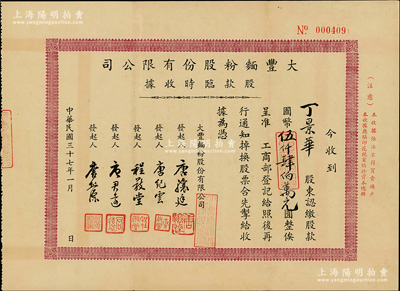 上海陽明拍賣
www.ymauction.com
No 000409
大豐麵粉股份有限公司
股款臨時收據
今收到
丁景華 股東認繳股款
國幣伍仟肆佰萬元圓整俟
呈准 工商部登記給照後再
行通知掉換股票合先掣給收
據為憑
大豐麵粉股份有限公司
發起人
發起人 唐紀雲
發起人 程敬堂
發起人 唐君遠
發起人
中華民國三十七年一月 日
(注意)
上海陽明拍賣
www.ymauction.com